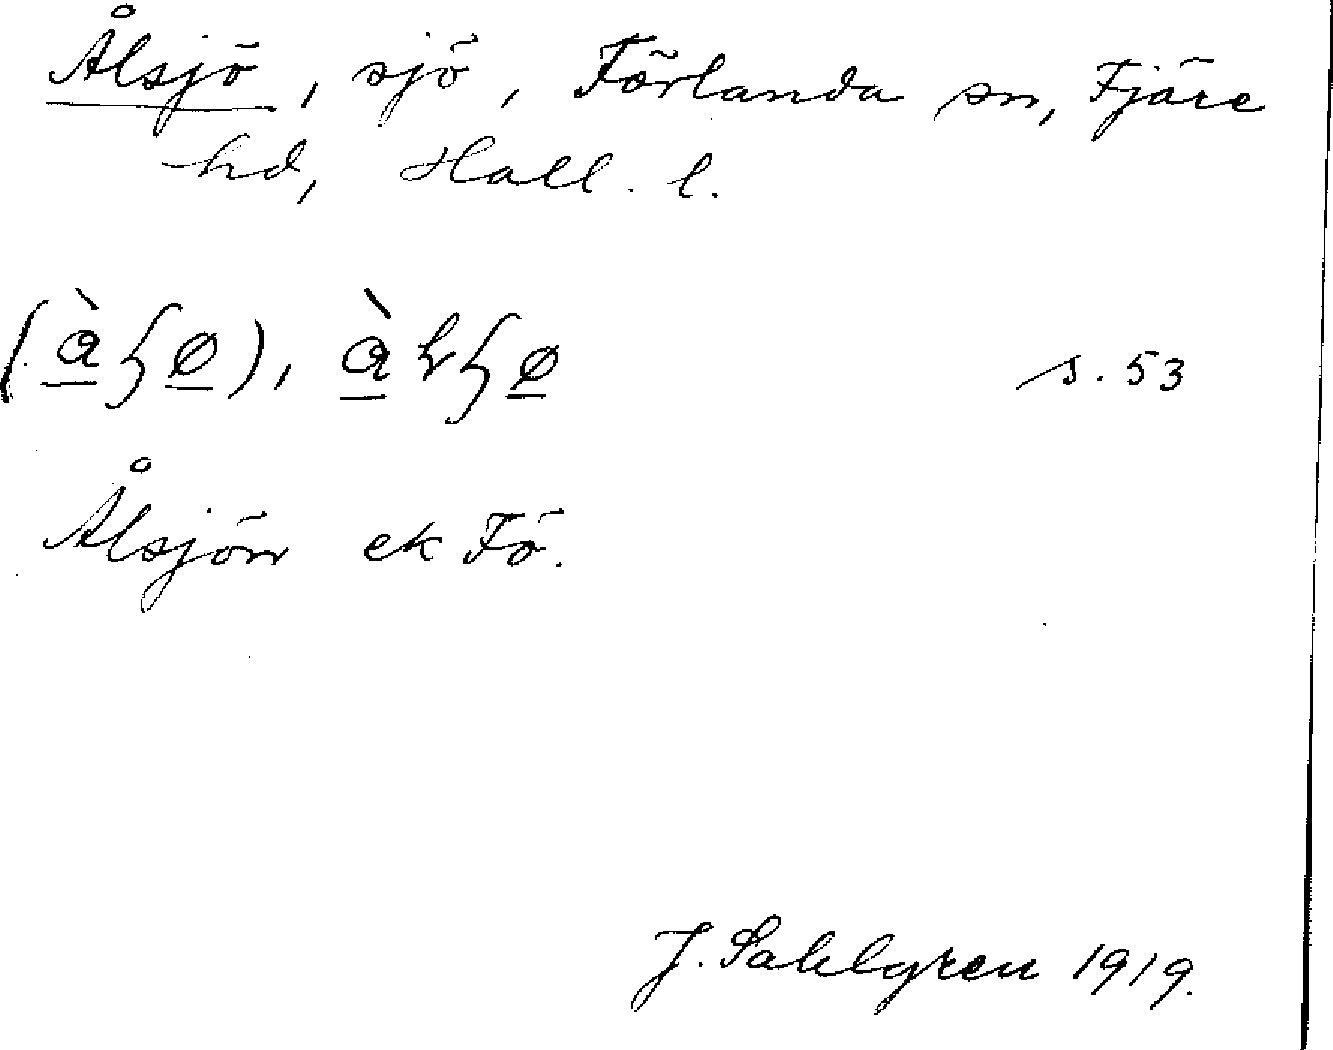 Ålsjö, sjö, Förlanda sn, Fjäre
hd, Hall. l.
s. 53
Ålsjön ek Fö.
J. Sahlgren 1919.